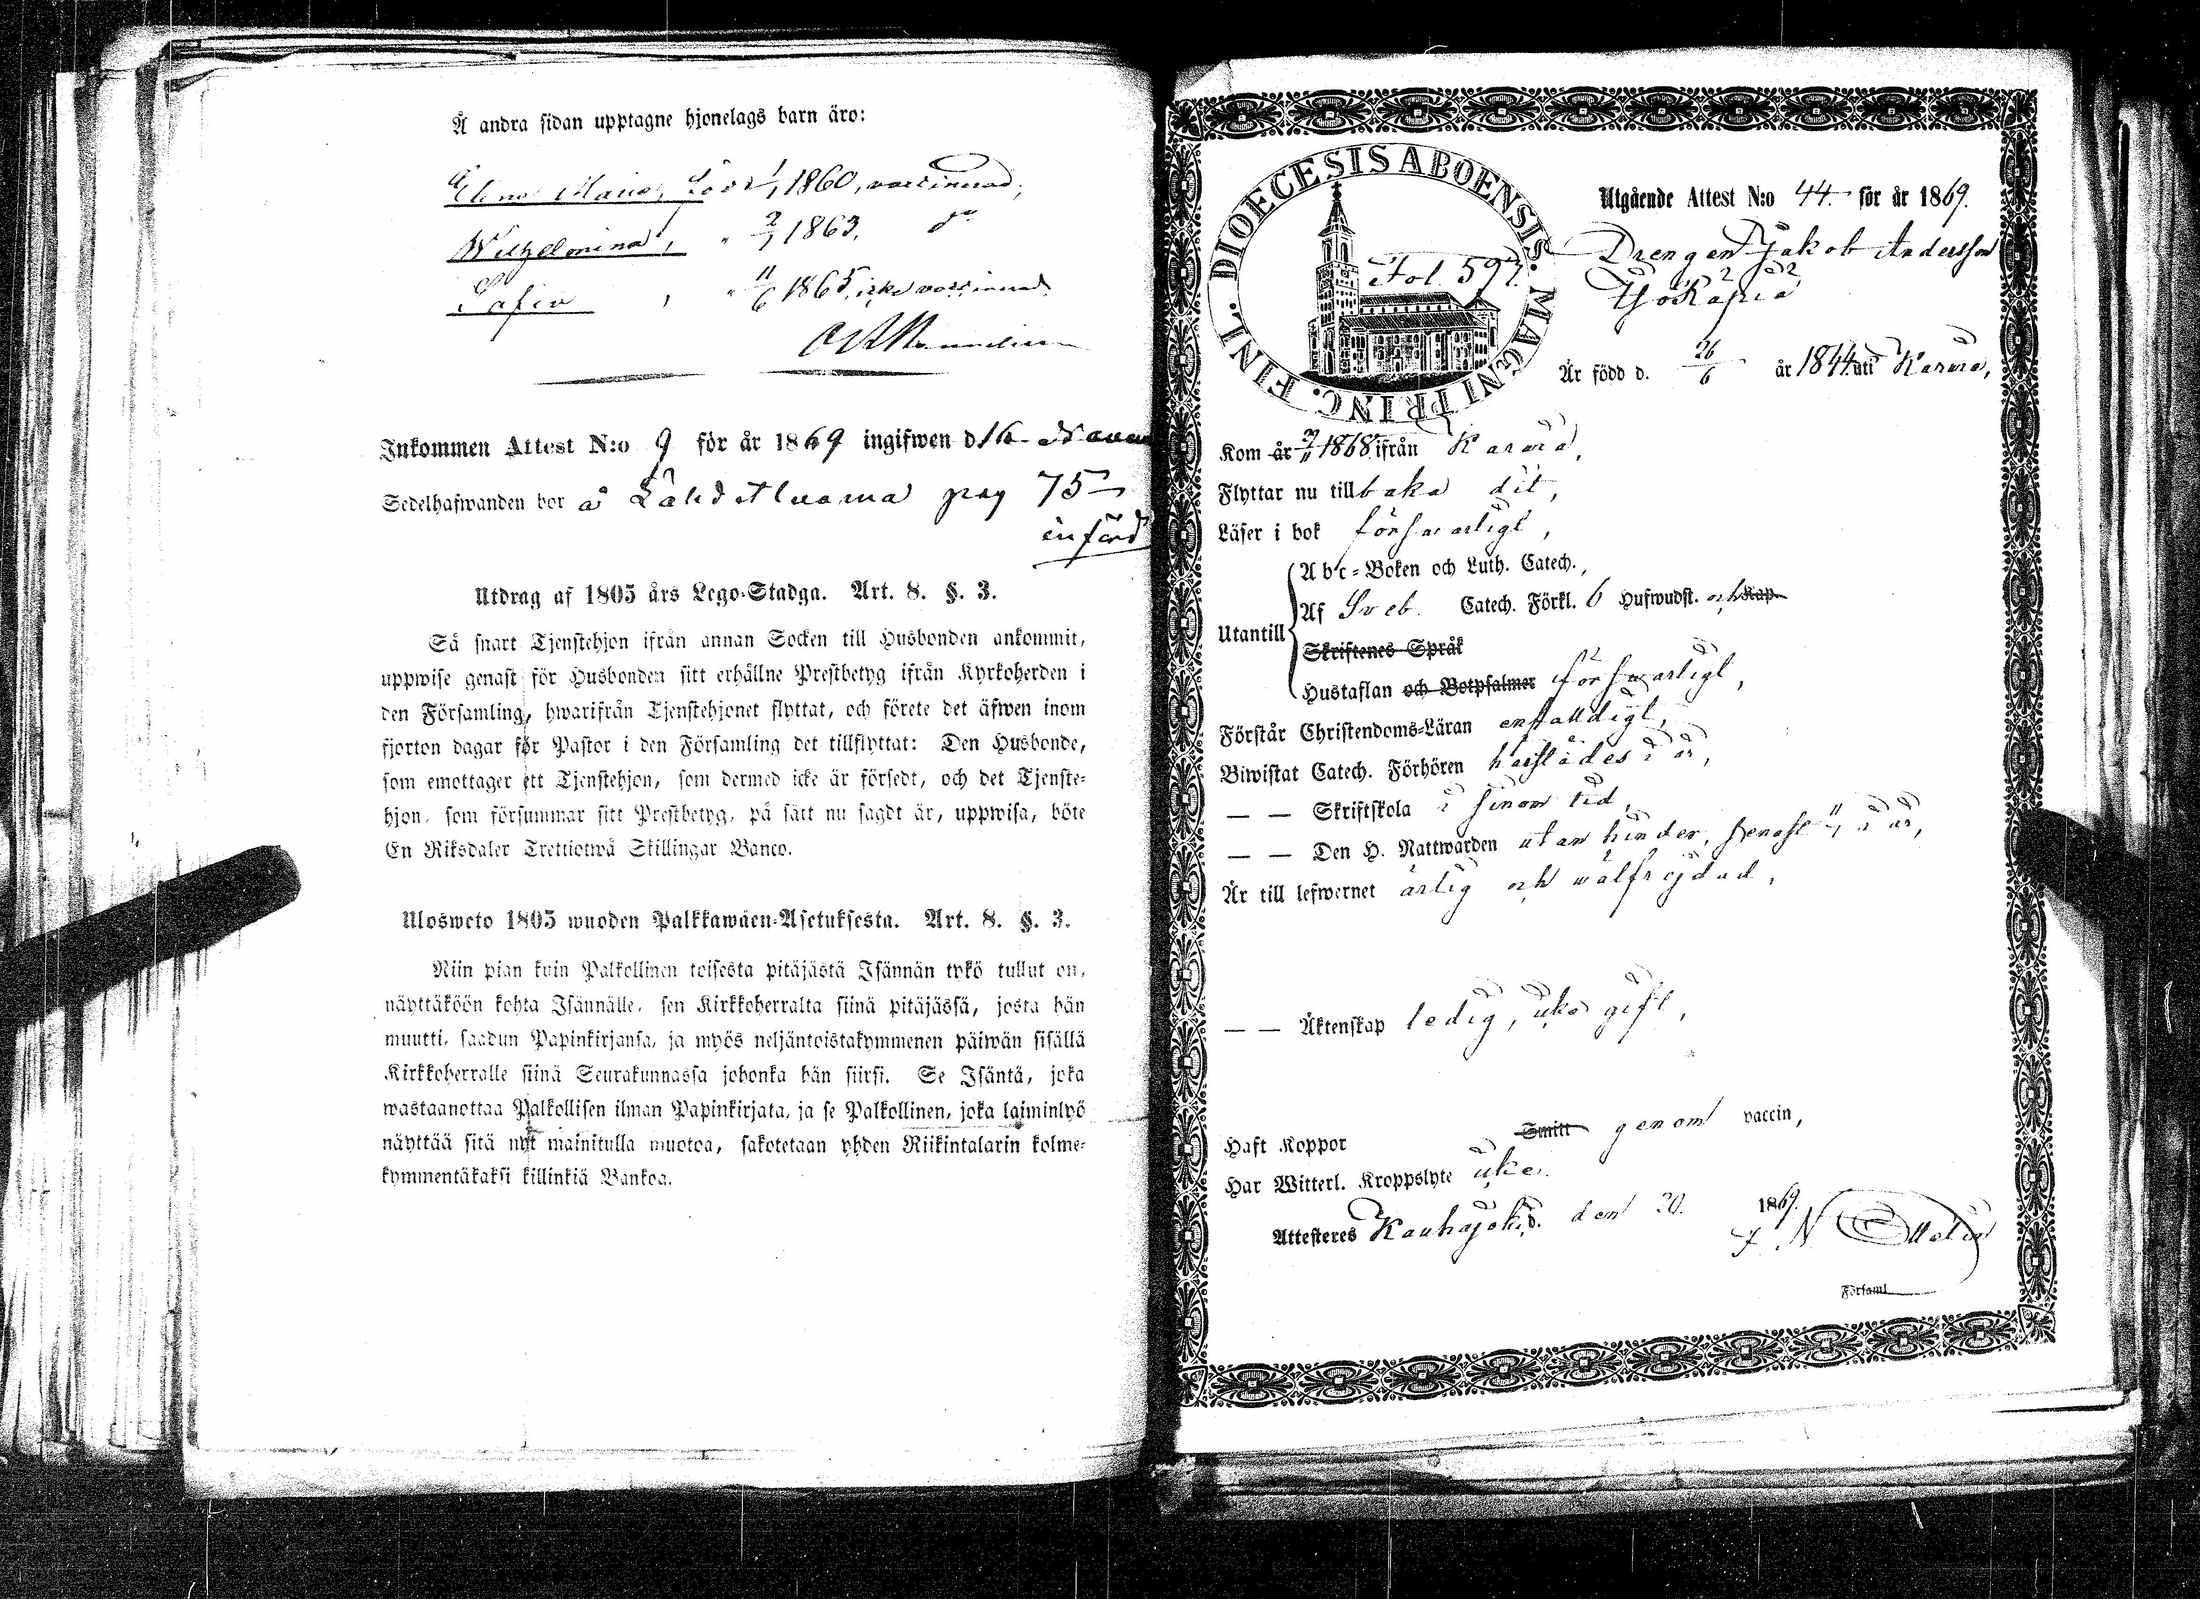 Å andra sidan upptagne hjonelags barn äro:
Elina Maria, född 1/1 1860, vaccinerad,
Wilhelmina, " 2/1 1863. do
Sofia, " 11/6 1865, icke vaccinerad
Inkommen Attest N:o 9 för år 1869 ingifwen d 16
Sedelhafwanden bor å pag 75
införd
Utdrag af 1805 års Lego-Stadga. Art. 8. §. 3.
Så snart Tjenstehjon ifrån annan Socken till Husbonden ankommit,
uppwise genast för Husbonden sitt erhållne Prestbetyg ifrån Kyrkoherden i
den Församling, hwarifrån Tjenstehjonet flyttat, och förete det äfwen inom
fjorton dagar för Pastor i den Församling det tillflyttat: Den Husbonde,
som emottager ett Tjenstehjon, som dermed icke är försedt, och det Tjenste-
hjon, som försummar sitt Prestbetyg, på sätt nu sagdt är, uppwisa, böte
En Riksdaler Trettiotwå Skillingar Banco.
Ulosweto 1805 wuoden Palkkawäen-Asetuksesta. Art. 8. §. 3.
Niin pian kuin Palkollinen toisesta pitäjästä Isännän tykö tullut on,
näyttäköön kohta Isännälle, sen Kirkkoherralta siinä pitäjässä, josta hän
muutti, saadun Papinkirjansa, ja myös neljäntoistakymmenen päiwän sisällä
Kirkkoherralle siinä Seurakunnassa johonka hän siirsi. Se Isäntä, joka
wastaanottaa Palkollisen ilman Papinkirjata, ja se Palkollinen, joka laiminlyö
näyttää sitä nyt mainitulla muotoa, sakotetaan yhden Riikintalarin kolme-
kymmentäkaksi killinkiä Bankoa.
DIOECESIS ABOENSIS. MAGNI PRINC. FINL.
Fol. 597.
Utgående Attest N:o 44. för år 1869.
Drengen Jakob Andersson
Yöskäpää
Är född d. 26/6 år 1844 uti Karvia,
Kom år 3/11 1868 ifrån Karvia,
Flyttar nu tillbaka dit,
Läser i bok försvarligt,
Utantill
Abc-Boken och Luth. Catech.,
Af Sveb. Catech. Förkl. 6 Hufwudst. och Kap.
Skriftenes Språk
Hustaflan och Botpsalmer försvarligt,
Förstår Christendoms-Läran enfaldigt,
Biwistat Catech. Förhören härstädes i år,
— — Skriftskola i sinom tid,
— — Den H. Nattwarden utan hinder, senast i år,
Är till lefwernet ärlig och välfrejdad,
— — Äktenskap ledig, icke gift,
Haft Koppor Smitt genom vaccin,
Har Witterl. Kroppslyte icke.
Attesteres Kauhajoki, d. den 20. 1869.
Församl.